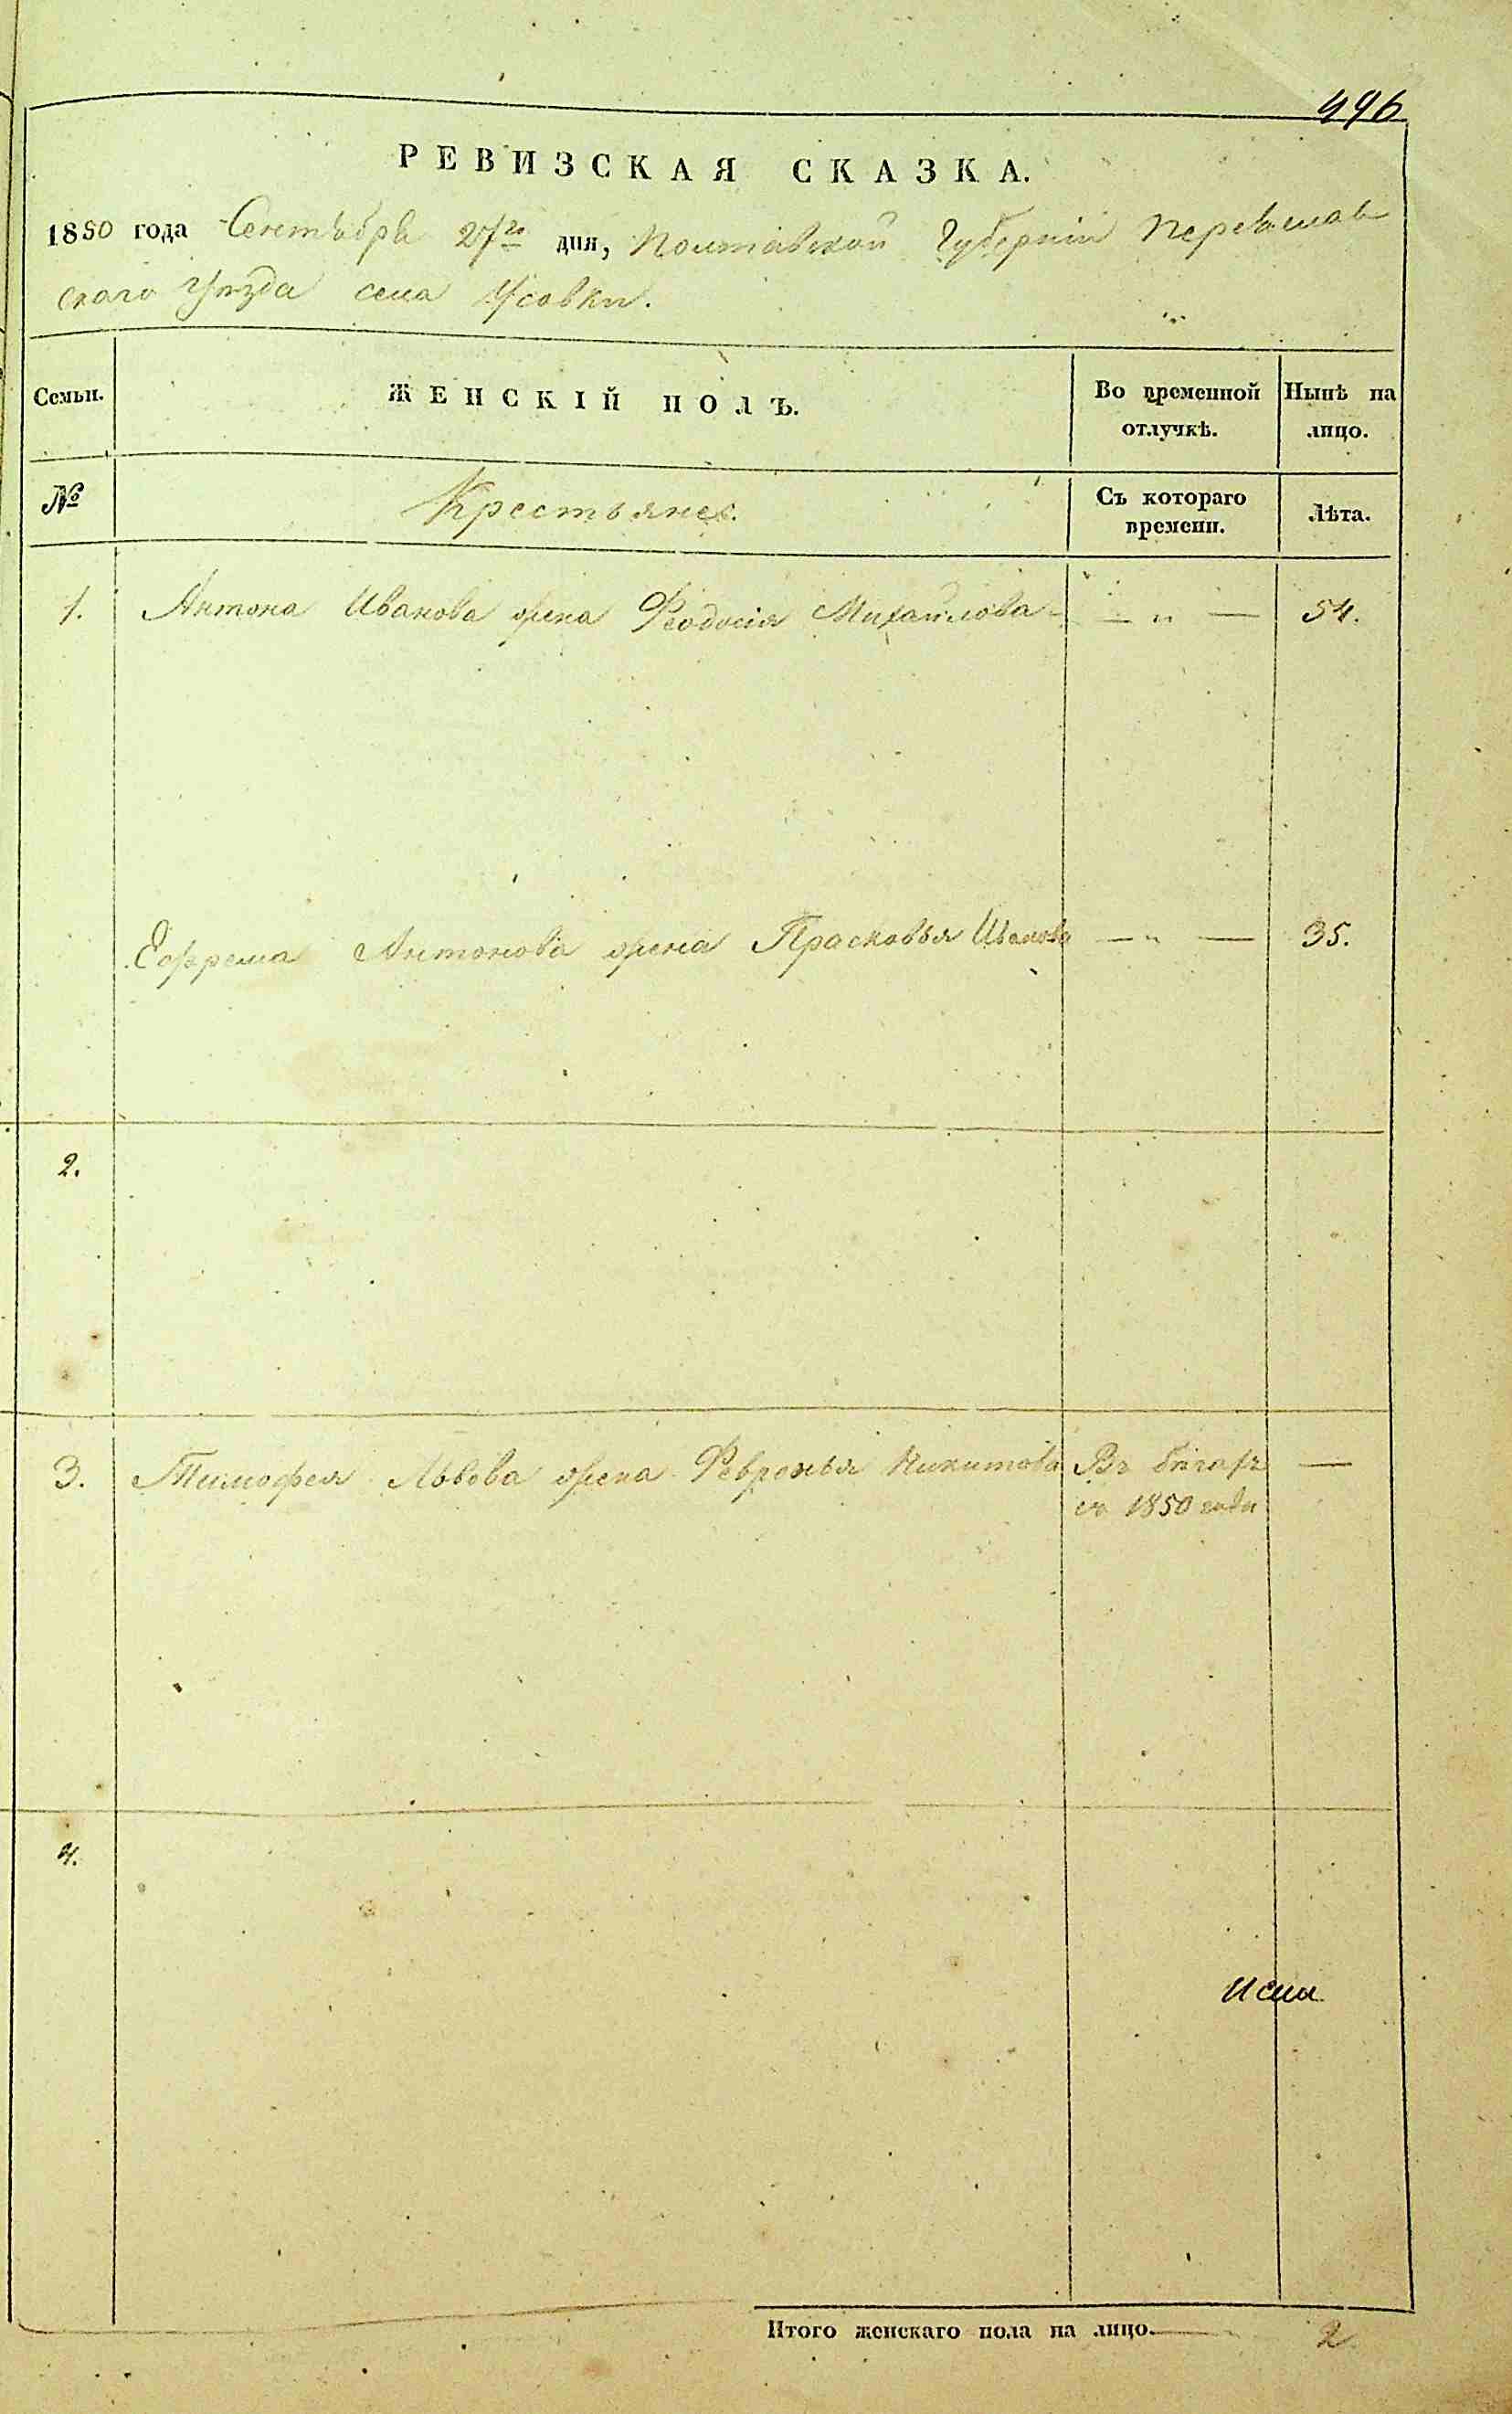 496
РЕВИЗСКАЯ СКАЗКА.
1850 года Сентября 27го дня, Полтавской Губерніи Переяслав
скаго уѣзда села Усовки.
Семьи. ЖЕНСКІЙ ПОЛЪ. Во временной отлучкѣ. Нынѣ на лицо.
№ Крестьяне. Съ котораго времени. Лѣта.
1. Антона Иванова жена Феодосія Михайлова — „ — 54.
Ефрема Антонова жена Прасковья Иванова — „ — 35.
2.
3. Тимофея Львова жена Февронья Никитова Въ бѣгахъ —
съ 1850 года
4.
Итого женскаго пола на лицо. 2